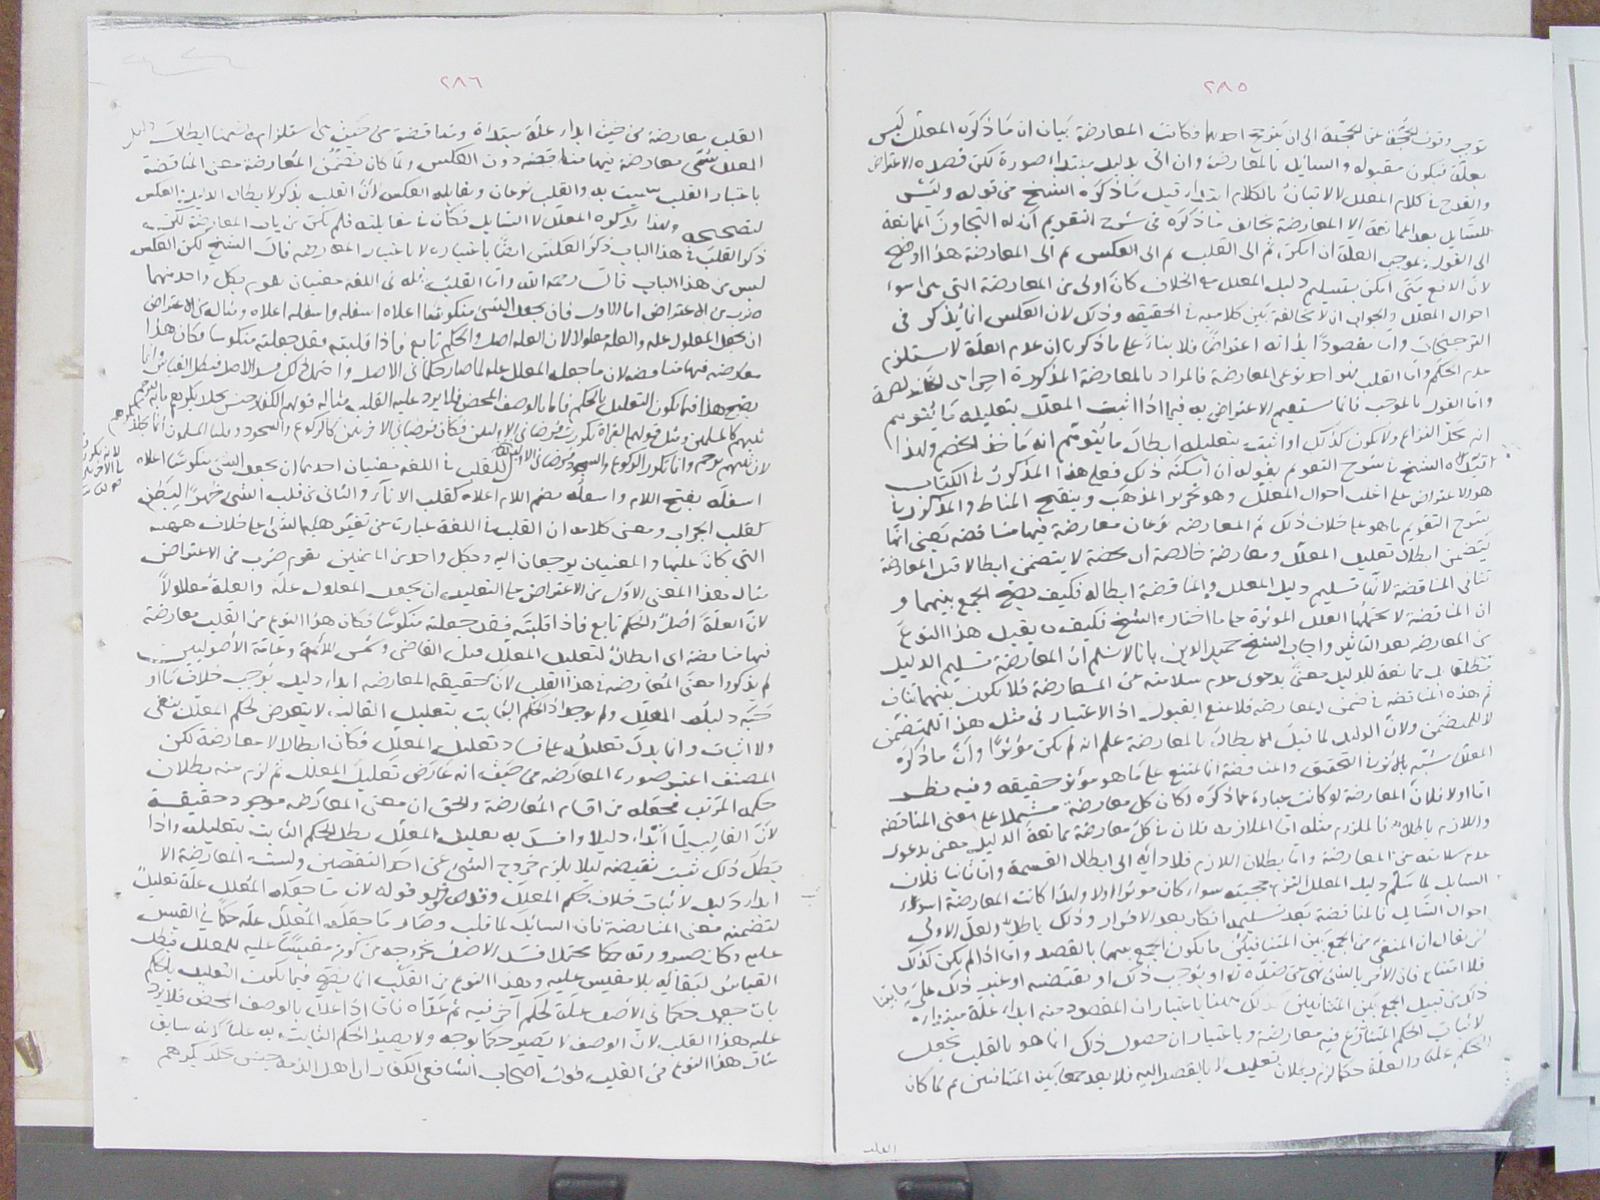 ٢٨٥
توجب وقوف الحجة على الحجة الى ان يترجح احدهما فكانت المعارضة بيان ان ما ذكره المعلل ليس
بعلة فيكون مقبوله والسايل بالمعارضة وان اتى بدليل مبتدا صورة لكن قصده الاعتراض
والقدح في كلام المعلل لا الاتيان بالكلام ابتداء قيل ما ذكره الشيخ من قوله وليس
للسايل بعد الممانعة الا المعارضة يخالف ما ذكره في شرح التقويم ان له التجاوز الممانعة
الى القول بموجب العلة ان امكن ثم الى القلب ثم الى العكس ثم الى المعارضة هذا اوضح
لان الدفع متى امكن بتسليم دليل المعلل مع الخلاف كان اولى من المعارضة التي هي اسوء
احوال المعلل والجواب ان لا مخالفة بين كلاميه في الحقيقة وذلك لان العكس انما يذكر في
الترجيحات واما مقصودا
عدم الحكم واما القلب فهو احد نوعي المعارضة فالمراد بالمعارضة المذكورة
واما القول بالموجب فانما يستقيم الاعتراض به فيما اذا اثبت المعلل بتعليله ما يتوهم
انه محل النزاع ولا يكون كذلك او اثبت بتعليله ابطال ما يتوهم انه ماخذ الخصم ولهذا
الشيخ في شرح التقويم بقوله ان امكنه ذلك فعلى هذا المذكور في الكتاب
هو الاعتراض على اغلب احوال المعلل وهو تحرير المذهب وينقح المناط والمذكور في
شرح التقويم ما هو على خلاف ذلك ثم المعارضة نوعان معارضة فيها مناقضة يعني انها
تتضمن ابطال تعليل المعلل ومعارضة خالصة اي محضة لا يتضمن ابطالا قيل المعارضة
تنافي المناقضة لانها تسليم دليل المعلل والمناقضة ابطاله فكيف يصح الجمع بينهما و
ان المناقضة لا تحتملها العلل المؤثرة على ما اختاره الشيخ فكيف يقبل هذا النوع
من المعارضة بعد التاثير واجاب الشيخ حميد الدين بانا لا نسلم ان المعارضة تسليم الدليل
مطلقا بل ممانعة للدليل معنى بدعوى عدم سلامته عن المعارضة فلا يكون بينهما تناف
ثم هذه المناقضة في ضمن المعارضة فلا تمنع القبول اذ الاعتبار في مثل هذا للمتضمن
لا للمتضمن ولان الدليل لما قبل الابطال بالمعارضة علم انه لم يكن مؤثرا وان ما ذكره
المعلل شبيه بالمؤثر في التحقيق والمناقضة انما تمتنع على ما هو مؤثر حقيقة وفيه نظر
اما اولا فلان المعارضة لو كانت عبارة عما ذكره لكان كل معارضة مشتملا على معنى المناقضة
واللازم باطل فالملزوم مثله اما الملازمة فلان في كل معارضة ممانعة الدليل معنى بدعوى
عدم سلامته عن المعارضة واما بطلان اللازم فلادائه الى ابطال القسمة واما ثانيا فلان
السايل لما سلم دليل المعلل التزم حجيته سواء كان مؤثرا اولا ولهذا كانت المعارضة اسوء
احوال السايل فالمناقضة بعد تسليمه انكار بعد الاقرار وذلك باطل ولعل الاولى
ان يقال ان المنفي من الجمع بين المتنافيين ما يكون الجمع بينهما بالقصد واما اذا لم يكن كذلك
فلا امتناع فان الامر بالشئ نهي عن ضده او يوجب ذلك او يقتضيه او غير ذلك على ما بينا
ذلك من قبيل الجمع بين المتنافيين باعتبار ان المقصود منه ابداء علة مبتداة
لاثبات الحكم المتنازع فيه معارضة وباعتبار ان حصول ذلك انما هو بالقلب بجعل
الحكم علة والعلة حكما لزم بطلان تعليله لا بالقصد اليه فلا يعد جمعا بين المتنافيين ثم لما كان
القلب
٢٨٦
القلب معارضة من حيث ابداء علة مبتداة ومناقضة من حيث استلزامه ضمنا ابطال دليل
المعلل سمي معارضة فيها مناقضة دون العكس ولما كان تضمن المعارضة معنى المناقضة
باعتبار القلب سميت به والقلب نوعان ويقابله العكس لان القلب يذكر لابطال الدليل والعكس
لتصحيحه ولهذا يذكره المعلل لا السايل فكان في مقابلته فلم يكن من باب المعارضة لكن
ذكر القلب في هذا الباب ذكر العكس ايضا باعتباره لا باعتبار المعارضة قال الشيخ لكن العكس
ليس من هذا الباب قال رحمه الله واما القلب فله في اللغة معنيان يقوم بكل واحد منهما
ضرب من الاعتراض اما الاول فان يجعل الشئ منكوسا اعلاه اسفله واسفله اعلاه ومثاله من الاعتراض
ان يجعل المعلول علة والعلة معلولا لان العلة اصل والحكم تابع فاذا قلبته فقد جعلته منكوسا فكان هذا
معارضة فيها مناقضة لان ما جعله المعلل علة لما صار حكما في الاصل واحتمل ذلك فسد الاصل فبطل القياس وانما
يصح هذا فيما يكون التعليل بالحكم فاما بالوصف المحض فلا يرد عليه القلب مثاله قولهم الكفار جنس يجلد بكرهم مائة فيرجم
ثيبهم كالمسلمين ومثل قولهم القراءة تكررت فرضا في الاوليين فكان فرضا في الاخريين كالركوع والسجود وقلنا المسلمون انما يجلد بكرهم
لان ثيبهم يرجم وانما تكرر الركوع والسجود فرضا في الاوليين للقلب في اللغة معنيان احدهما ان يجعل الشئ منكوسا اعلاه
لانه تكرر
في الاخريين
اسفله بفتح اللام واسفله بضم اللام اعلاه كقلب الاناء والثاني قلب الشئ ظهرا لبطن
كقلب الجراب ومعنى كلامه ان القلب في اللغة عبارة عن تغير هيئة الشئ على خلاف هيئته
التي كان عليها والمعنيان يرجعان اليه وبكل واحد من المعنيين يقوم ضرب من الاعتراض
مثاله بهذا المعنى الاول من الاعتراض على التعليل ان يجعل المعلول علة والعلة معلولا
لان العلة اصل والحكم تابع فاذا قلبته فقد جعلته منكوسا فكان هذا النوع من القلب معارضة
فيها مناقضة اي ابطال لتعليل المعلل قيل القاضي وشمس الائمة وعامة الاصوليين
لم يذكروا معنى المعارضة في هذا القلب لان حقيقة المعارضة ابداء دليل يوجب خلاف ما او
جبه دليل المعلل ولم يوجد اذ الحكم الثابت بتعليل القالب لا يتعرض لحكم المعلل بنفي
ولا اثبات وانما يدل تعليله على فساد تعليل المعلل فكان ابطالا لا معارضة لكن
المصنف اعتبر صورة المعارضة من حيث انه عارض تعليل المعلل ثم لزم منه بطلان
حكمه المرتب فجعله من اقسام المعارضة والحق ان معنى المعارضة موجود حقيقة
لان القالب لما ابدى دليلا وافسد به تعليل المعلل بطل الحكم الثابت بتعليله واذا
بطل ذلك ثبت نقيضه ليلا يلزم خروج الشئ عن احد النقيضين وليست المعارضة الا
ابداء دليل لاثبات خلاف حكم المعلل قوله لان ما جعله المعلل علة تعليل
لتضمنه معنى المناقضة فان السايل لما قلب وصار ما جعله المعلل علة حكما في المقيس
عليه وكان صيرورته حكما محتملا فسد الاصل بخروجه عن كونه مقيسا عليه للمعلل فبطل
القياس لبقائه بلا مقيس عليه وهذا النوع من القلب انما يصح فيما يكون التعليل بالحكم
بان جعل حكما في الاصل علة لحكم آخر فيه ثم عداه فاما اذا علل بالوصف المحض فلا يرد
عليه هذا القلب لان الوصف لا يصير حكما بوجه ولا يصير الحكم الثابت به علة لانه سابق
مثال هذا النوع من القلب قول اصحاب الشافعي الكفار اي اهل الذمة جنس يجلد بكرهم